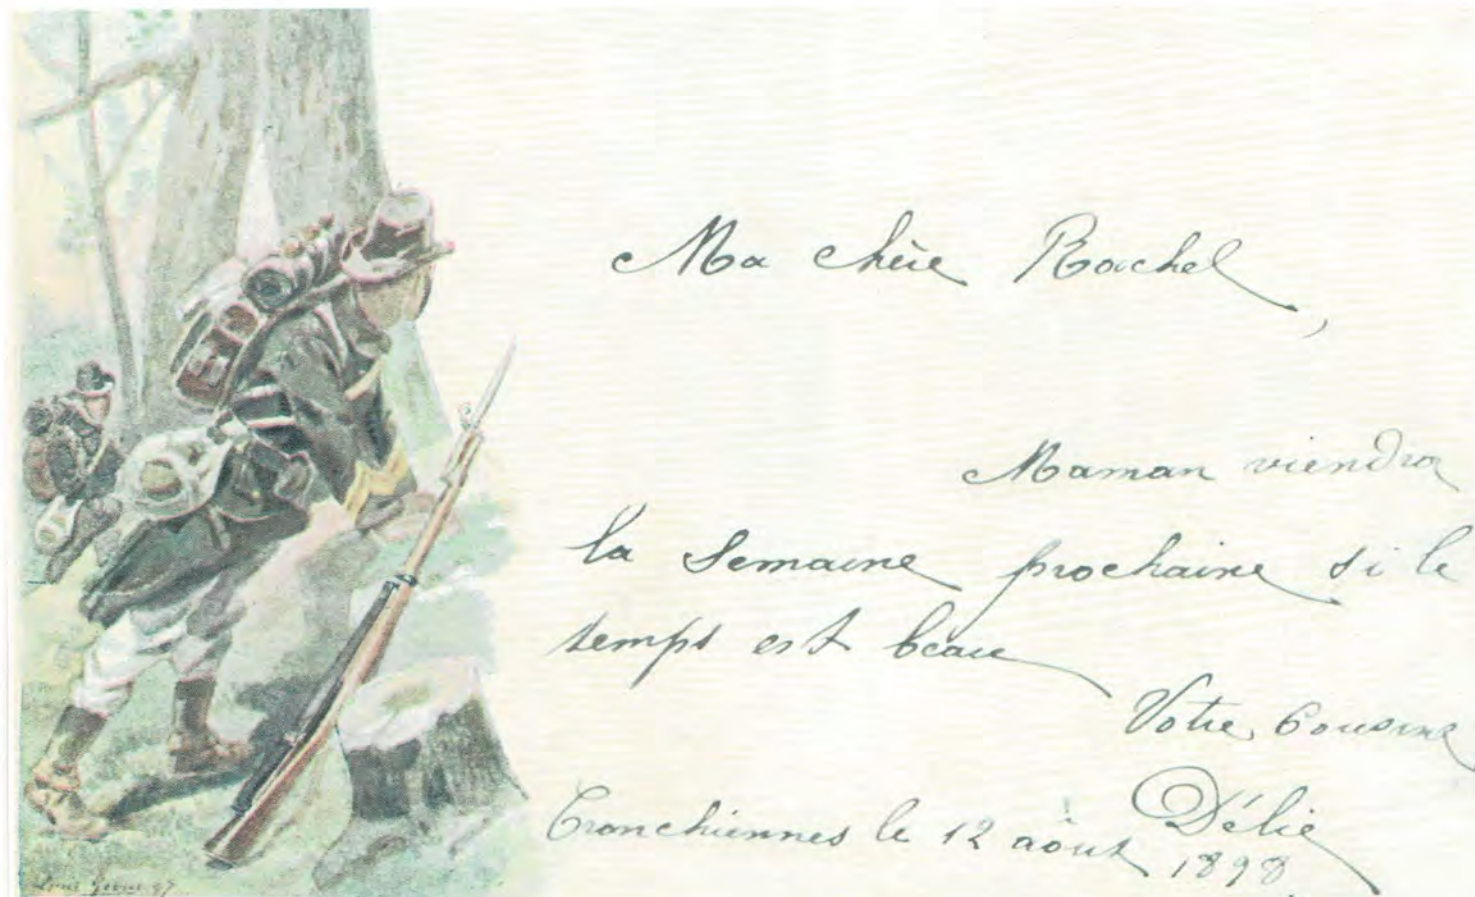 Ma chère Rachel,
Maman viendra
la Semaine prochaine si le
temps est beau
Votre Cousine
Délie
Tronchiennes le 12 août 1898.
Louis 97